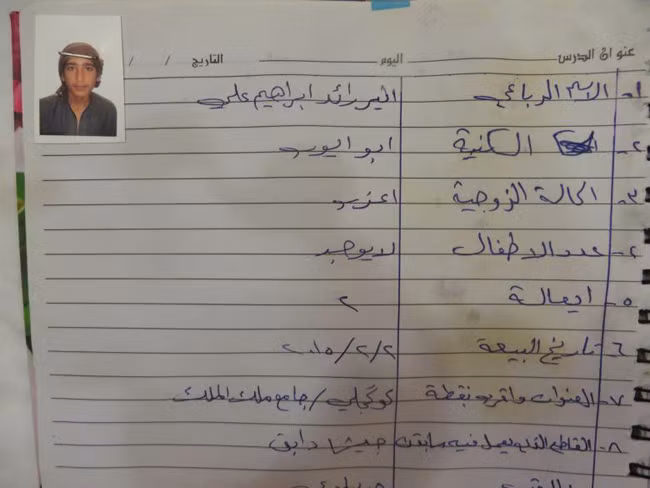 عنوان الدرس اليوم التاريخ / /
١- الاسم الرباعي ابراهيم علي
٢- الكنية ابو ايوب
٣- الحالة الزوجية اعزب
٤- عدد الاطفال لا يوجد
٥- ايعالة ٢
٦- تاريخ البيعة ٢/٢/٢٠١٥
٧- العنوان واقرب نقطة كوكجلي / جامع ملك الملك
٨- القاطع الذي يعمل فيه سابقا جيش دابق